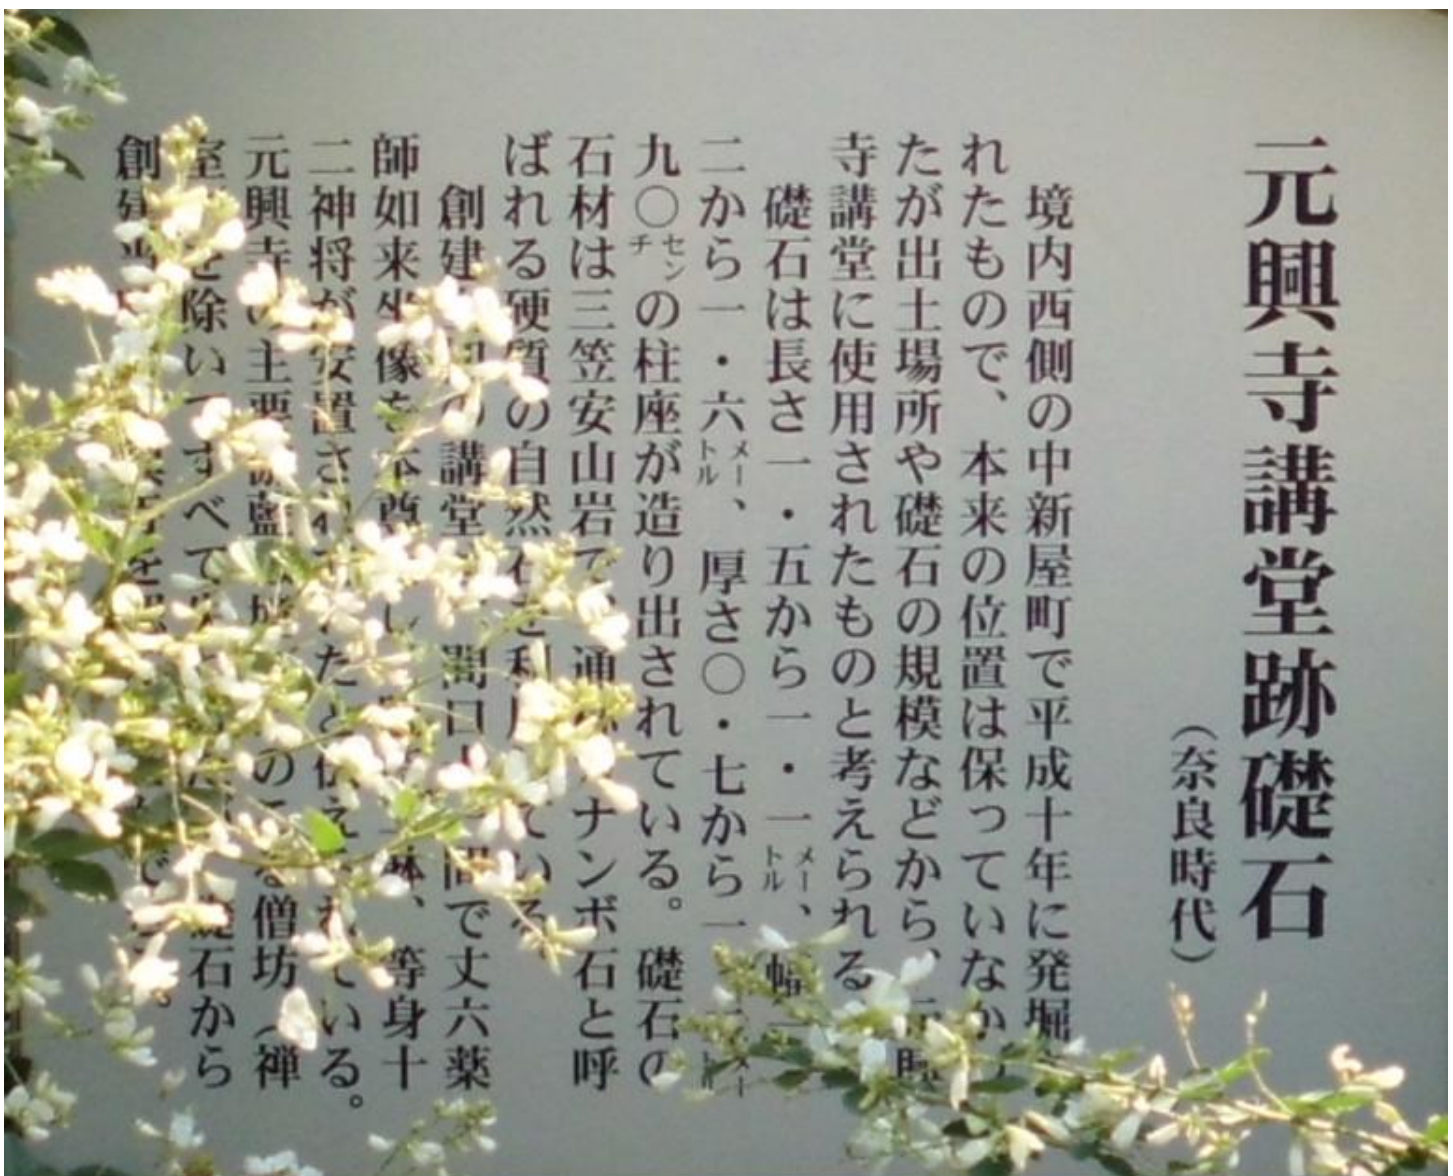 元興寺講堂跡礎石
（奈良時代）
境内西側の中新屋町で平成十年に発掘
れたもので、本来の位置は保っていなか
たが出土場所や礎石の規模などから、
寺講堂に使用されたものと考えられる
礎石は長さ一・五から一・一メートル、幅一
二から一・六メートル、厚さ〇・七から一
九〇センチの柱座が造り出されている。礎石の
石材は三笠安山岩で通 ナンボ石と呼
ばれる硬質の自然石を利用 ている
創建 の講堂 間口 間で丈六薬
師如来坐像を本尊 し 、等身十
二神将が安置されたと伝えられている。
元興寺の主要伽藍 の る僧坊（禅
室 を除いてすべて 礎石から
創建当 を で 。